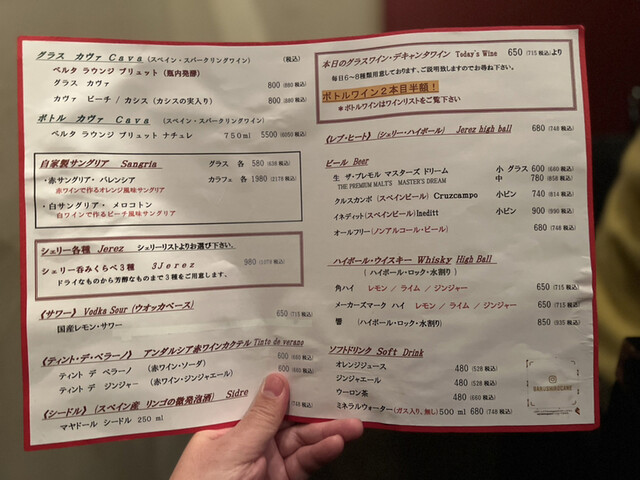 グラス カヴァ Cava (スペイン・スパークリングワイン) (税込)
ベルタ ラウンジ ブリュット (瓶内発酵)
グラス カヴァ 800 (880 税込)
カヴァ ピーチ / カシス (カシスの実入り) 800 (880 税込)
ボトル カヴァ Cava (スペイン・スパークリングワイン)
ベルタ ラウンジ ブリュット ナチュレ 750ml 5500 (6050 税込)
自家製サングリア Sangria グラス 各 580 (638 税込)
・赤サングリア・バレンシア カラフェ 各 1980 (2178 税込)
赤ワインで作るオレンジ風味サングリア
・白サングリア・メロコトン
白ワインで作るピーチ風味サングリア
シェリー各種 Jerez シェリーリストよりお選び下さい。
シェリー呑みくらべ3種 3Jerez 980 (1078 税込)
ドライなものから芳醇なものまで3種をご用意します。
《サワー》 Vodka Sour (ウオッカベース)
国産レモン・サワー 650 (715 税込)
《ティント・デ・ベラーノ》 アンダルシア赤ワインカクテル Tinto de verano
ティント デ ベラーノ (赤ワイン・ソーダ) 600 (660 税込)
ティント デ ジンジャー (赤ワイン・ジンジャエール) 600 (660 税込)
《シードル》 (スペイン産 リンゴの微発泡酒) Sidre
マヤドール シードル 250 ml (748 税込)
本日のグラスワイン・デキャンタワイン Today's Wine 650 (715 税込) より
毎日6～8種類用意しております、ご説明致しますのでお尋ね下さい。
ボトルワイン2本目半額！
＊ボトルワインはワインリストをご覧下さい
《レブ・ヒート》 (シェリー・ハイボール) Jerez high ball 680 (748 税込)
ビール Beer
生 ザ・プレモル マスターズ ドリーム 小 グラス 600 (660 税込)
THE PREMIUM MALT'S MASTER'S DREAM 中 780 (858 税込)
クルスカンポ (スペインビール) Cruzcampo 小ビン 740 (814 税込)
イネディット(スペインビール) Ineditt 小ビン 900 (990 税込)
オールフリー (ノンアルコール・ビール) 680 (748 税込)
ハイボール・ウイスキー Whisky High Ball
(ハイボール・ロック・水割り)
角ハイ レモン / ライム / ジンジャー 650 (715 税込)
メーカーズマーク ハイ レモン / ライム / ジンジャー 650 (715 税込)
響 (ハイボール・ロック・水割り) 850 (935 税込)
ソフトドリンク Soft Drink
オレンジジュース 480 (528 税込)
ジンジャエール 480 (528 税込)
ウーロン茶 480 (660 税込)
ミネラルウォーター (ガス入り、無し) 500 ml 680 (748 税込)